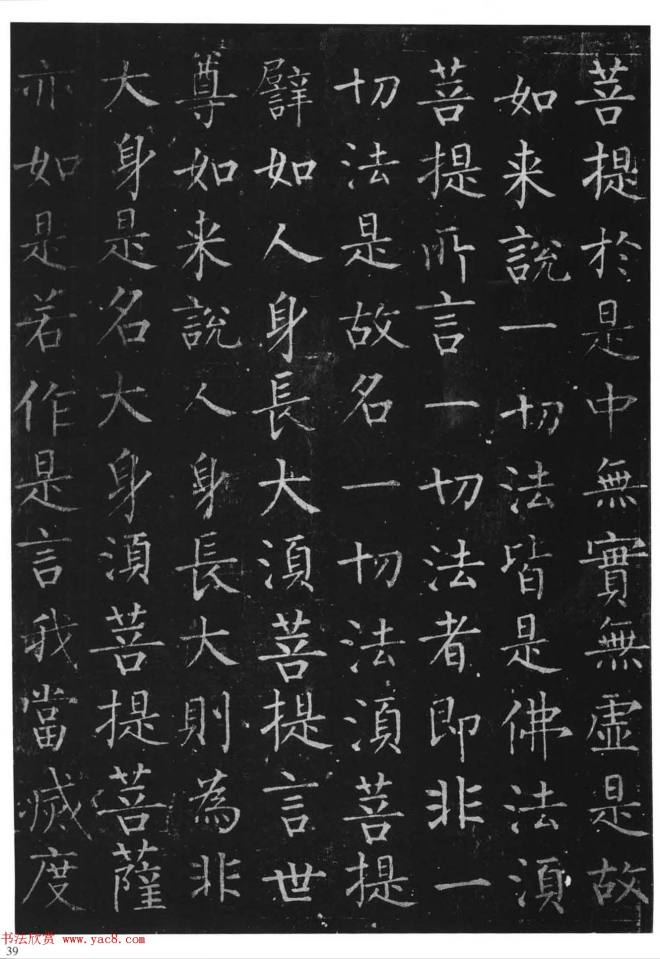 菩提於是中無實無虛是故
如来說一切法皆是佛法湏
菩提所言一切法者即非一
切法是故名一切法湏菩提
譬如人身長大湏菩提言世
尊如来說人身長大則為非
大身是名大身湏菩提菩薩
亦如是若作是言我當滅度
书法欣赏 www.yac8.com
39